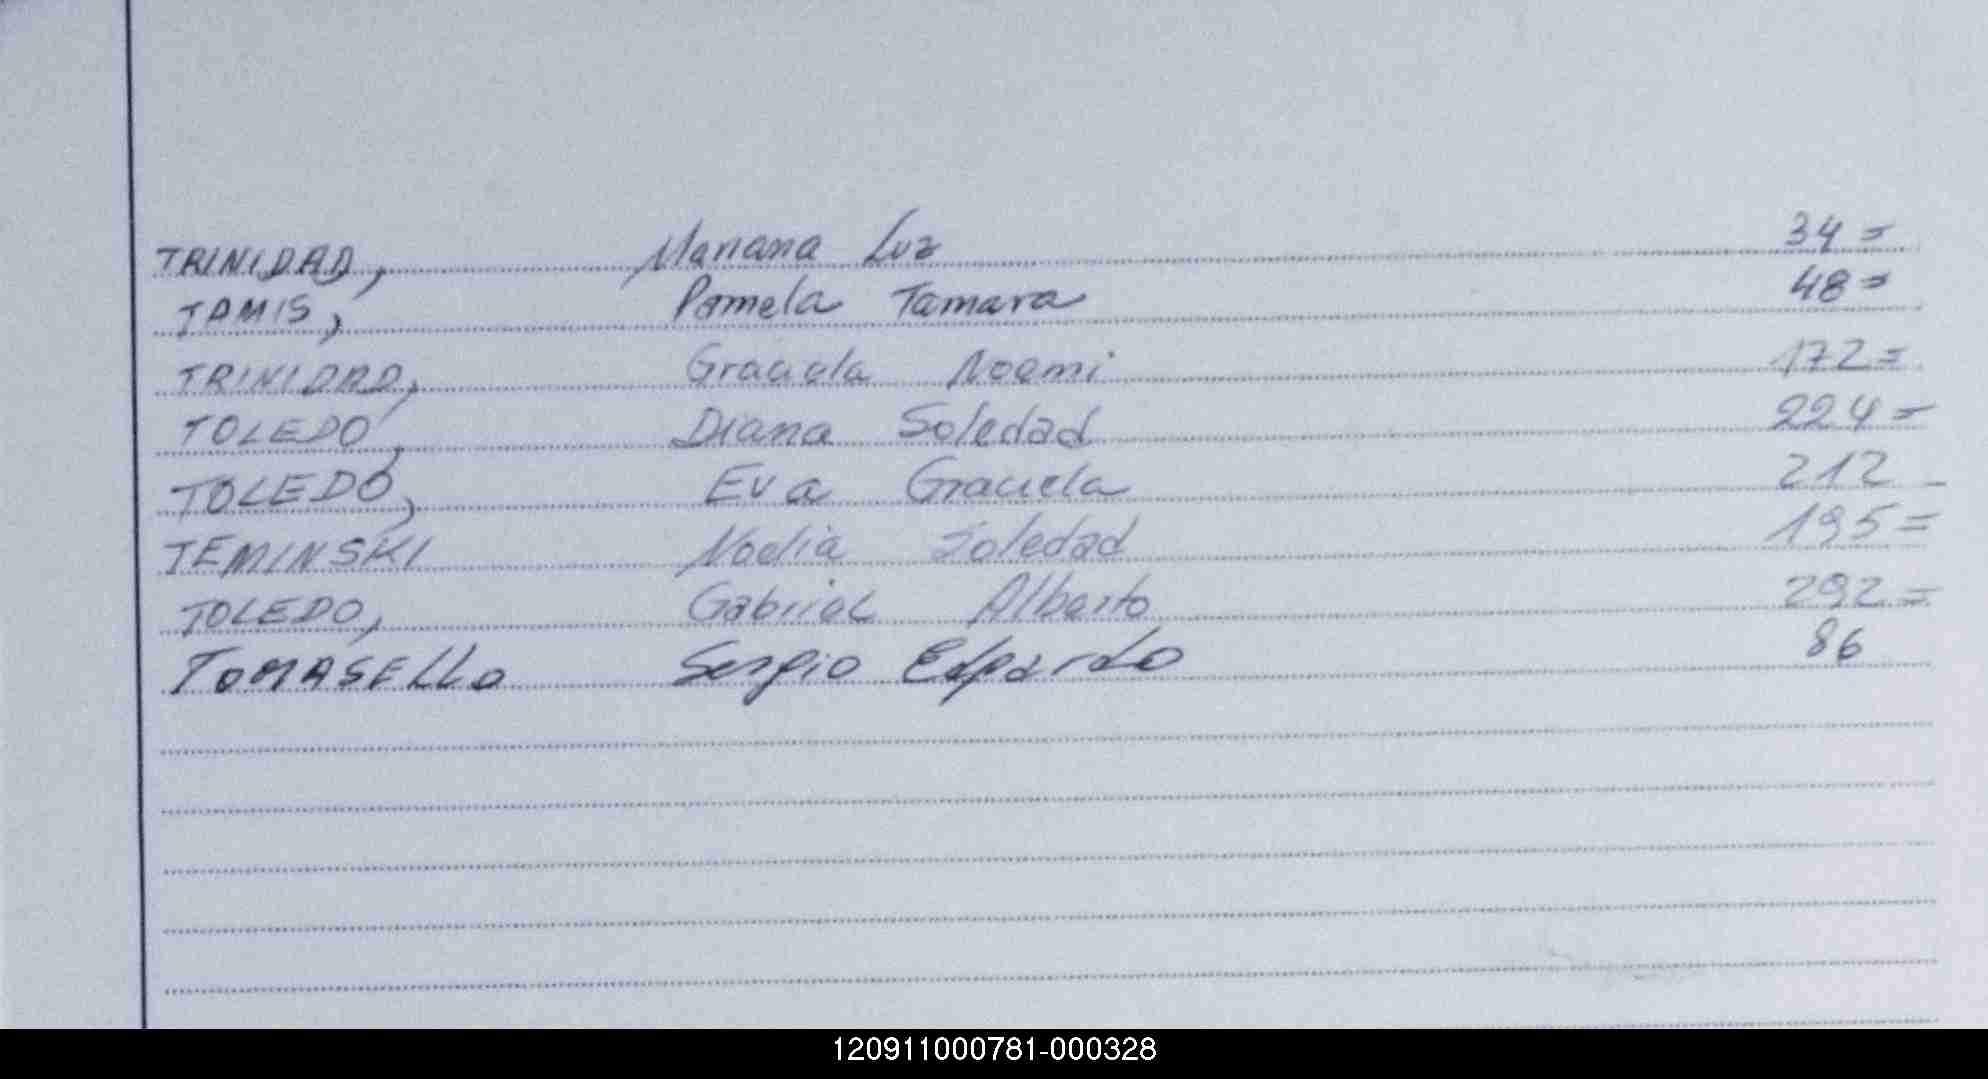 TRINIDAD, Mariana Luz 34=
TAMIS, Pamela Tamara 48=
TRINIDAD, Graciela Noemi 172=
TOLEDO, Diana Soledad 224=
TOLEDO, Eva Graciela 212_
TEMINSKI Nadia Soledad 195=
TOLEDO, Gabriel Alberto 292=
TOMASELLO Sergio Edgardo 86
120911000781-000328